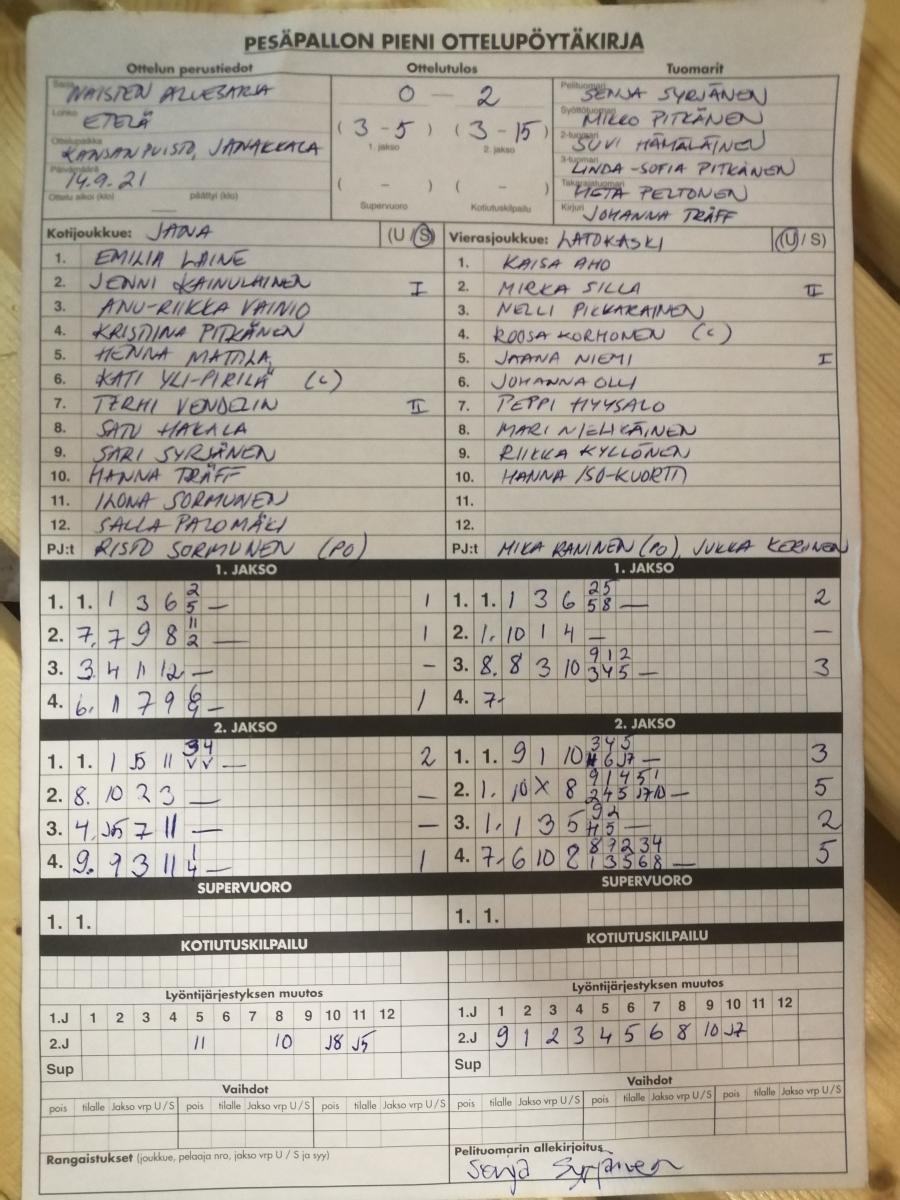 PESÄPALLON PIENI OTTELUPÖYTÄKIRJA
Ottelun perustiedot Ottelutulos Tuomarit
Sarja NAISTEN ALUESARJA
Lohko ETELÄ
Ottelupaikka KANSANPUISTO, JANAKKALA
Päivämäärä 14.9.21
Ottelu alkoi (klo) päättyi (klo)
0 - 2
(3-5) (3-15)
1. jakso 2. jakso
( - ) ( - )
Supervuoro Kotiutuskilpailu
Pelituomari SENJA SYRJÄNEN
Syöttötuomari MIKKO PITKÄNEN
2-tuomari SUVI HÄMÄLÄINEN
3-tuomari LINDA-SOFIA PITKÄNEN
Takarajatuomari META PELTONEN
Kirjuri JOHANNA TRÄFF
Kotijoukkue: JANA (U / S)
1. EMILIA LAINE
2. JENNI KAINULAINEN I
3. ANU-RIIKKA VAINIO
4. KRISTIINA PITKÄNEN
5. HENNA MATTILA
6. KATI YLI-PIRILÄ (C)
7. TERHI VENDELIN II
8. SATU HAKALA
9. SARI SYRJÄNEN
10. HANNA TRÄFF
11. ILONA SORMUNEN
12. SALLA PALOMÄKI
PJ:t RISTO SORMUNEN (PO)
Vierasjoukkue: LATOKASKI (U / S)
1. KAISA AHO
2. MIRKA SILLA II
3. NELLI PIKKARAINEN
4. ROOSA KORHONEN (C)
5. JAANA NIEMI I
6. JOHANNA OLLI
7. PEPPI HYYSALO
8. MARI NIELIKÄINEN
9. RIIKKA KYLLÖNEN
10. HANNA ISO-KUORTTI
11.
12.
PJ:t MIKA RANINEN (PO), JUKKA KERINEN
1. JAKSO
1. 1. 1 3 6 2 5 — 1
2. 7. 7 9 8 11 2 — 1
3. 3. 4 11 12 — –
4. 6. 11 7 9 6 9 — 1
1. JAKSO
1. 1. 1 3 6 25 58 — 2
2. 1. 10 1 4 — –
3. 8. 8 3 10 912 345 — 3
4. 7.
2. JAKSO
1. 1. 1 5 11 34 VV — 2
2. 8. 10 2 3 — –
3. 4. 7 11 — –
4. 9. 9 3 11 1 4 — 1
2. JAKSO
1. 1. 9 1 10 345 — 3
2. 1. 10 X 8 91451 — 5
3. 1. 1 3 5 92 — 2
4. 7. 6 10 2 87234 13568 — 5
SUPERVUORO
1. 1.
SUPERVUORO
1. 1.
KOTIUTUSKILPAILU
KOTIUTUSKILPAILU
Lyöntijärjestyksen muutos
1.J 1 2 3 4 5 6 7 8 9 10 11 12
2.J 11 10 J8 J5
Sup
Lyöntijärjestyksen muutos
1.J 1 2 3 4 5 6 7 8 9 10 11 12
2.J 9 1 2 3 4 5 6 8 10 J7
Sup
Vaihdot
pois tilalle Jakso vrp U/S pois tilalle Jakso vrp U/S pois tilalle Jakso vrp U/S
Vaihdot
pois tilalle Jakso vrp U/S pois tilalle Jakso vrp U/S pois tilalle Jakso vrp U/S
Rangaistukset (joukkue, pelaaja nro, jakso vrp U / S ja syy)
Pelituomarin allekirjoitus
Senja Syrjänen